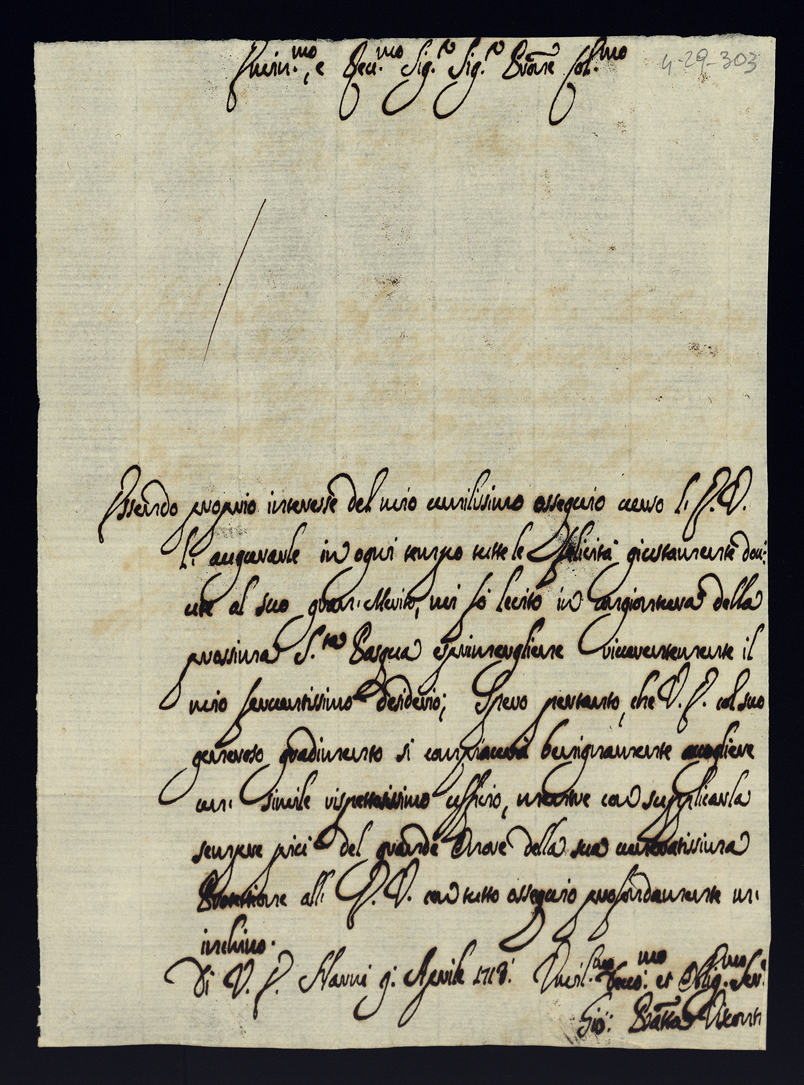 Illu.mo, e Ecc.mo Sig.r Sig.r Prone Col.mo
4-29-303
Essendo proprio interesse del mio umilissimo ossequio verso l' E. V.
l' augurarle in ogni tempo tutte le felicità giustamente dovu:
ute al suo gran Merito, mi fò lecito in congiontura della
prossima S.ta Pasqua esprimergliene riverentemente il
mio ferventissimo desiderio; Spero pertanto, che V. E. col suo
generoso gradimento si compiacerà benignamente accogliere
un simile rispettosissimo ufficio, mentre con supplicarla
sempre più del grande onore della sua
Protettione all' E. V. con tutto ossequio profondamente m'
inchino.
Di V. E. 9. Aprile 1718. Umil.mo Devo.mo et Oblig.mo Ser.e
Gio: Batta Visconti